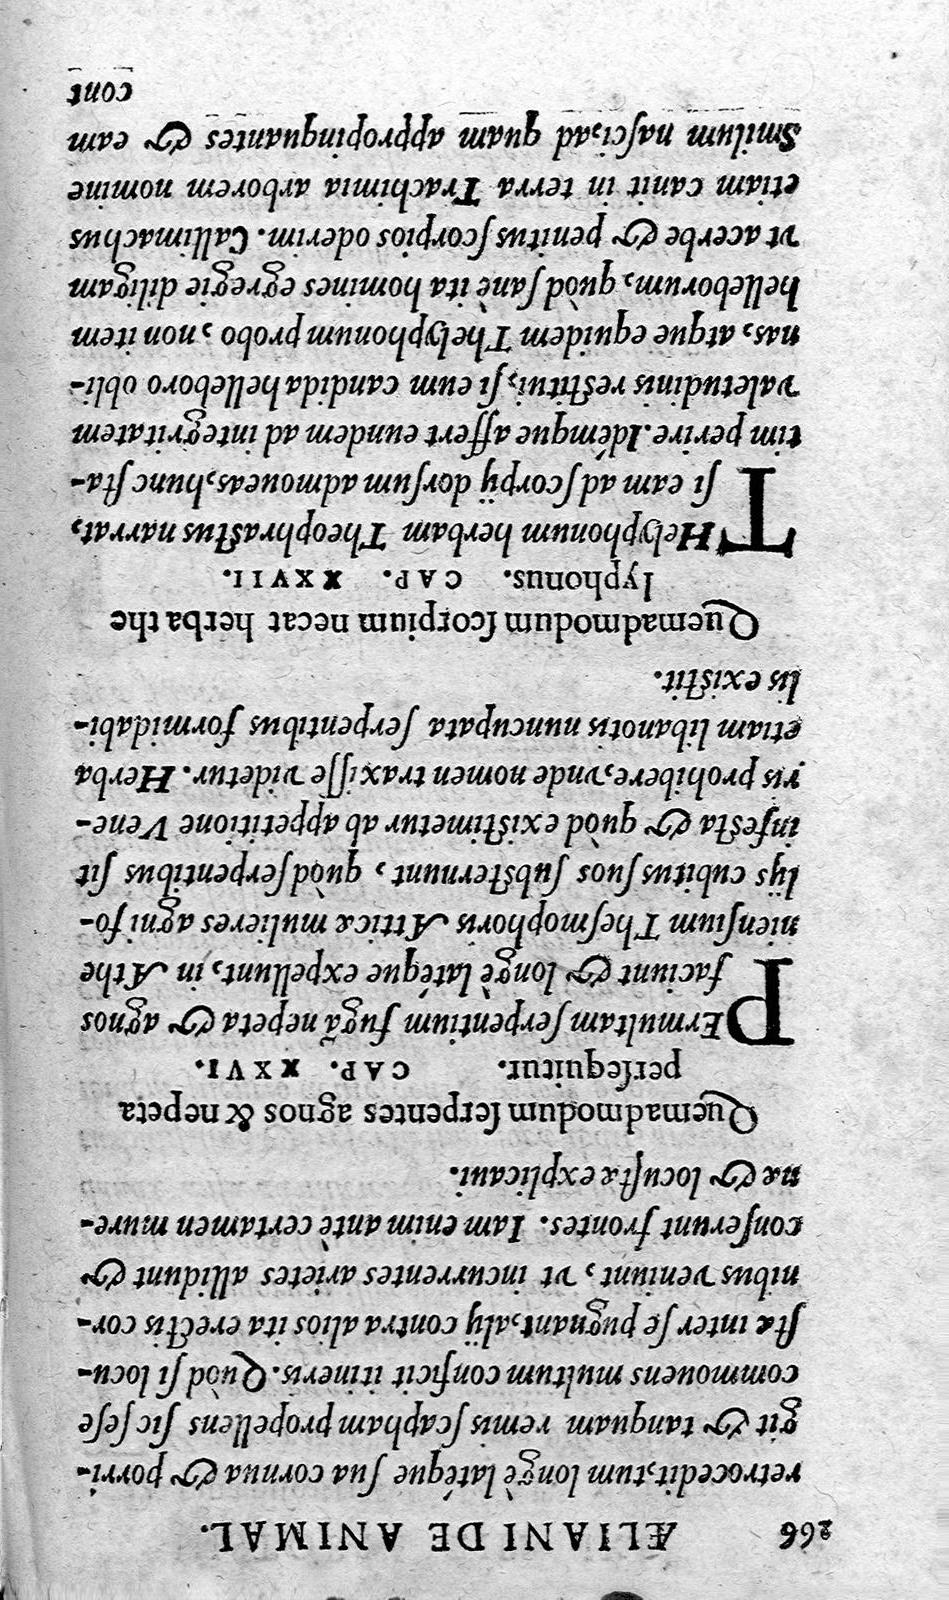 266 ÆLIANI DE ANIMAL.
retrocedit, tum longè latéque sua cornua & porri-
git & tanquam remis scapham propellens sic sese
commouens multum conficit itineris. Quòd si locu-
stæ inter se pugnant, alÿ contra alios ita erectis cor-
nibus veniunt, vt incurrentes arietes allidunt &
conserunt frontes. Iam enim antè certamen mure-
næ & locustæ explicaui.
Quemadmodum serpentes agnos & nepeta
persequitur. CAP. XXVI.
PErmultam serpentium fugã nepeta & agnos
faciunt & longè latéque expellunt, in Athe
niensium Thesmophoris Atticæ mulieres agni fo-
lÿs cubitus suos substernunt, quòd serpentibus sit
infesta & quòd existimetur ab appetitione Vene-
ris prohibere, vnde nomen traxisse videtur. Herba
etiam libanotis nuncupata serpentibus formidabi-
lis existit.
Quemadmodum scorpium necat herba the
lyphonus. CAP. XXVII.
THelyphonum herbam Theophrastus narrat,
si eam ad scorpÿ dorsum admoueas, hunc sta-
tim perire. Idémque affert eundem ad integritatem
valetudinis restitui, si eum candida helleboro obli-
nas, atque equidem Thelyphonum probo, non item
helleborum, quòd sanè ita homines egregie diligam
vt acerbe & penitus scorpios oderim. Callimachus
etiam canit in terra Trachinia arborem nomine
Smilum nasci, ad quam appropinquantes & eam
cont